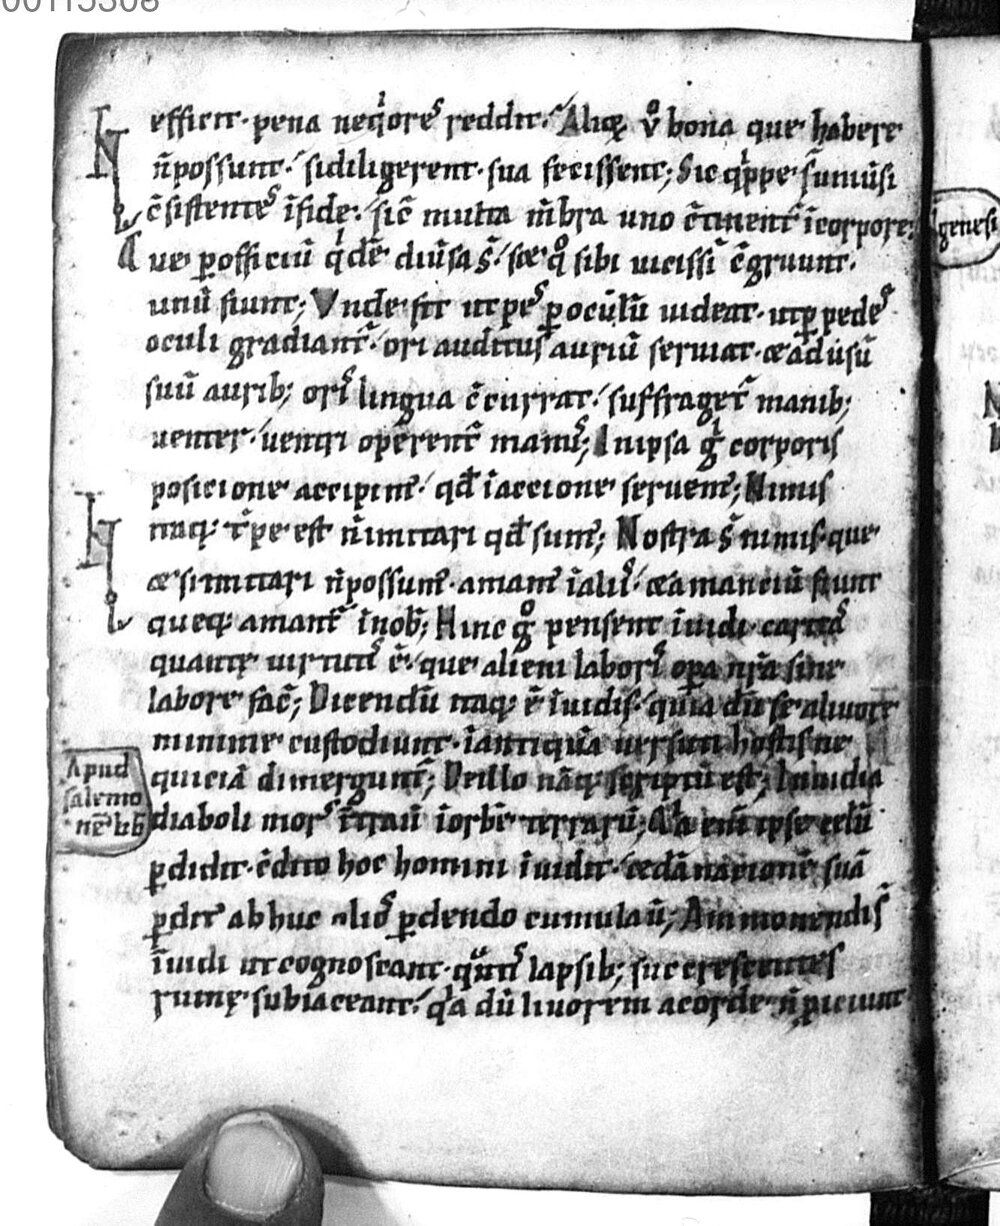 00115308
efficit. pena neq̇ores reddit. Aliaę v̊ bona que habere
n̄ possunt. si diligerent. sua fecissent; Sic q̇ppe sumus̄i
c̄sistentes īfide. sic̄ multa m̄bra uno c̄tinent̄ īcorpore;
genesi
Que ꝑ officiū q̇dē diūsa s̄. sꝫ q̊ sibi uicissī c̄gruunt.
unū fiunt; Vnde fit ut pes ꝑ oculū uideat. ut ꝑ pedes
oculi gradiant̄. ori auditus auriū seruiat. ꝫ ad usū
suū aurib; oris lingua c̄currat. suffraget̄ manib;
uenter. uentri operent̄ manus; In ipsa g̊ corporis
posicione accipim̄. qd̄ īaccione seruem̄; Nimis
itaq; t̄pe est n̄ imitari qd̄ sum̄; Nostra s̄ nimis que
ꝫ si imitari n̄ possum̄. amam̄ īaliis. ꝫ amanciū fiunt
queq; amant̄ īnob̄; Hinc g̊ pensent īuidi. caritas
quantę uirtutis ē. que alieni laboris opa nr̄a sine
labore fac̄; Dicendū itaq; ē īuidis. quia dū se aliuore
minime custodiunt. īantiquā uersuti hostis ne
Apud
salemo
nē lib
quiciā dimergunt̄; De illo nāq; scriptū est; Inuidia
diaboli mors ītrauī īorbē terrarū; Q̇a eni ipse celū
ꝑdidit. c̄dito hoc homini īuidit. ꝫ dānationē suā
ꝑdit ab huc alios ꝑdendo cumulauī; Ammonendis
īuidi ut cognoscant. quantis lapsib; succrescentes
ruinę subiaceant. q̇a dū liuorem acorde n̄ piciunt